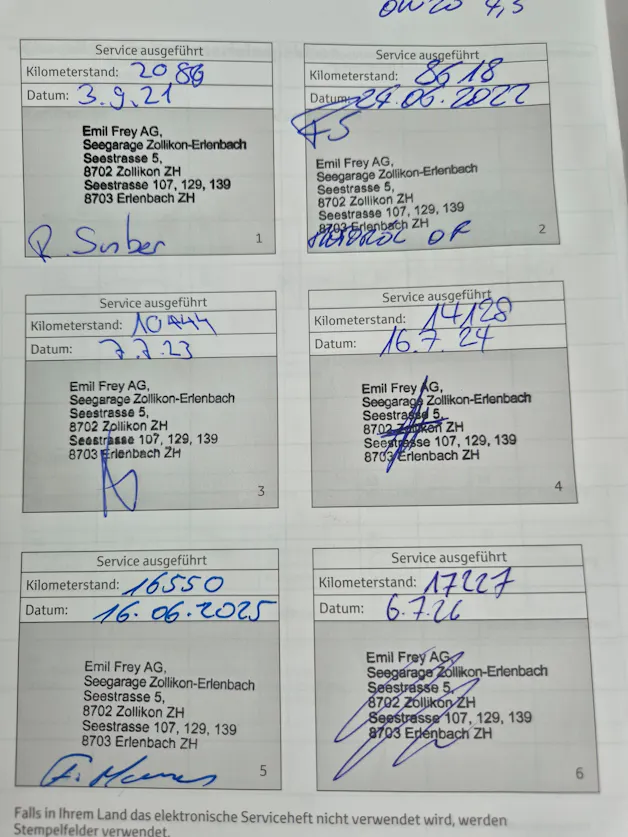 Service ausgeführt
Kilometerstand: 2086
Datum: 3.9.21
Emil Frey AG,
Seegarage Zollikon-Erlenbach
Seestrasse 5,
8702 Zollikon ZH
Seestrasse 107, 129, 139
8703 Erlenbach ZH
1
Service ausgeführt
Kilometerstand: 8618
Datum: 24.06.2022
Emil Frey AG,
Seegarage Zollikon-Erlenbach
Seestrasse 5,
8702 Zollikon ZH
Seestrasse 107, 129, 139
8703 Erlenbach ZH
2
Service ausgeführt
Kilometerstand: 10444
Datum: 7.7.23
Emil Frey AG,
Seegarage Zollikon-Erlenbach
Seestrasse 5,
8702 Zollikon ZH
Seestrasse 107, 129, 139
8703 Erlenbach ZH
3
Service ausgeführt
Kilometerstand: 14128
Datum: 16.7.24
Emil Frey AG,
Seegarage Zollikon-Erlenbach
Seestrasse 5,
8702 Zollikon ZH
Seestrasse 107, 129, 139
8703 Erlenbach ZH
4
Service ausgeführt
Kilometerstand: 16550
Datum: 16.06.2025
Emil Frey AG,
Seegarage Zollikon-Erlenbach
Seestrasse 5,
8702 Zollikon ZH
Seestrasse 107, 129, 139
8703 Erlenbach ZH
5
Service ausgeführt
Kilometerstand: 17227
Datum: 6.7.26
Emil Frey AG,
Seegarage Zollikon-Erlenbach
Seestrasse 5,
8702 Zollikon ZH
Seestrasse 107, 129, 139
8703 Erlenbach ZH
6
Falls in Ihrem Land das elektronische Serviceheft nicht verwendet wird, werden
Stempelfelder verwendet.